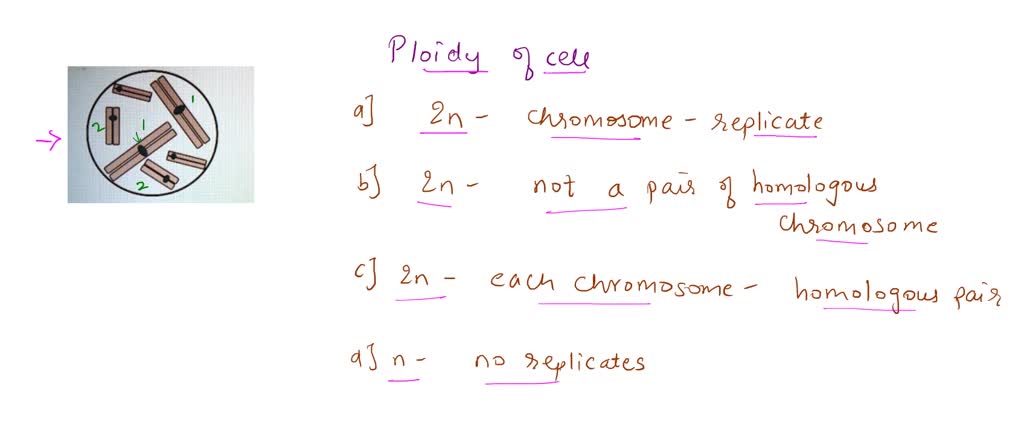 Ploidy of cell
a] 2n - chromosome - replicate
b] 2n - not a pair of homologous
chromosome
c] 2n - each chromosome - homologous pair
d] n - no replicates
1
2
1
2